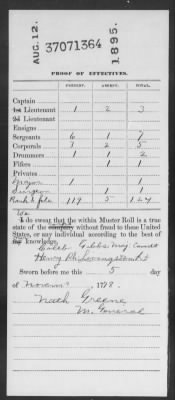 AUG. 12. 37071364 1895.
PROOF OF EFFECTIVES.
PRESENT. ABSENT. TOTAL.
Captain
1st Lieutenant 1 2 3
2d Lieutenant
Ensigns
Sergeants 6 1 7
Corporals 3 2 5
Drummers 1 1 2
Fifers 1 1
Privates
Major 1 1
Surgeon 1 1
Rank & file 119 5 124
We
I do swear that the within Muster Roll is a true
state of the company without fraud to these United
States, or any individual according to the best of
knowledge.
Caleb Gibbs Maj Comdt
Henry Ph Livingston
Sworn before me this 5 day
of Novem 1778.
Nath Greene
M. General